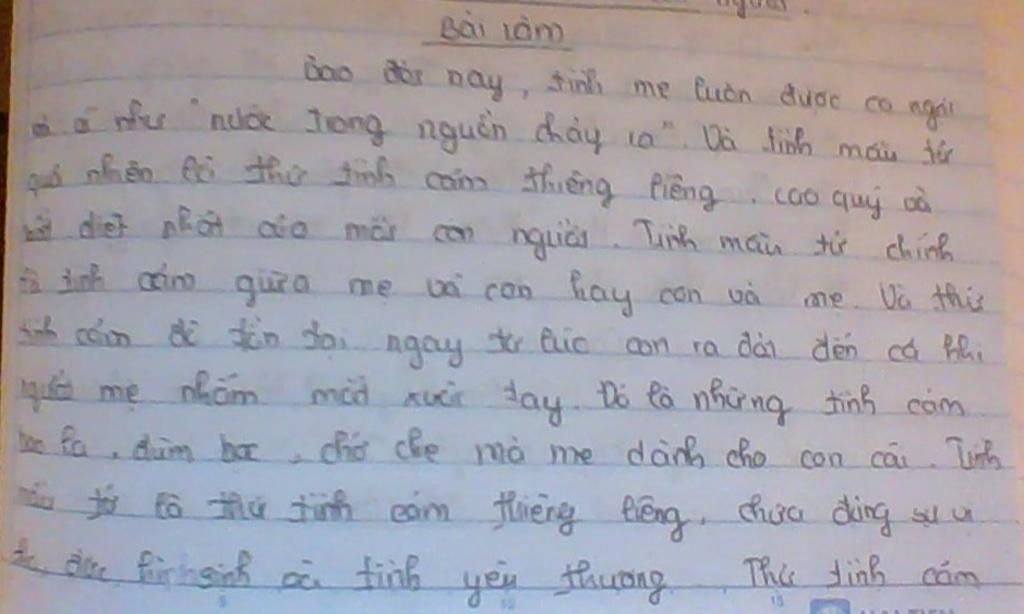 người.
Bài làm
Bao đời nay, tình mẹ luôn được ca ngợi
ví như "nước trong nguồn chảy ra". Và tình mẫu tử
quả nhiên là thứ tình cảm thiêng liêng, cao quý và
bất diệt nhất của mỗi con người. Tình mẫu tử chính
là tình cảm giữa mẹ và con hay con và mẹ. Và thứ
tình cảm đó tồn tại ngay từ lúc con ra đời đến cả khi
người mẹ nhắm mắt xuôi tay. Đó là những tình cảm
, đùm bọc, chở che mà mẹ dành cho con cái. Tình
mẫu tử là thứ tình cảm thiêng liêng, chứa đựng sự
đức hi sinh và tình yêu thương. Thứ tình cảm